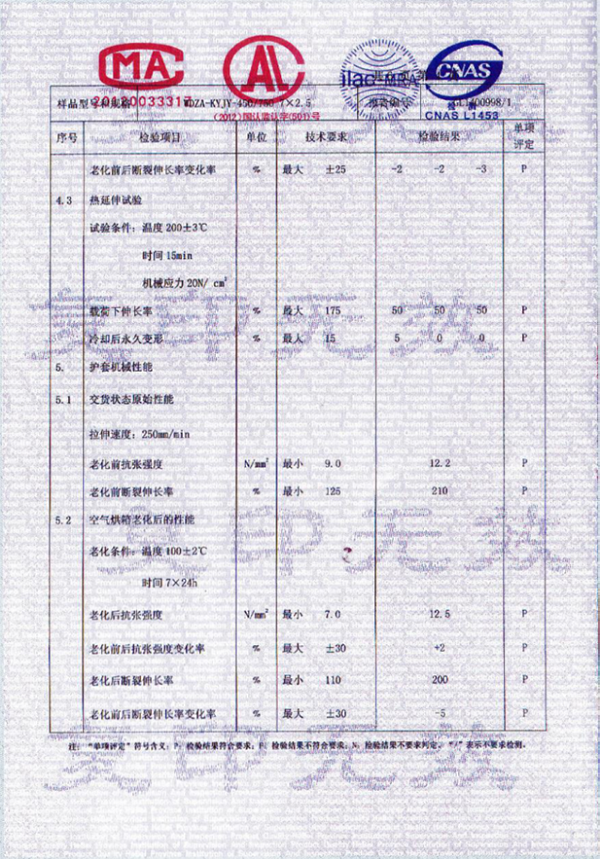 MA
AL
ilac-MRA
CNAS
20120033317
(2012)国认监认字(591)号
CNAS L1453
样品型号和规格 WDZA-KYJY-450/750 7×2.5
序号 检验项目 单位 技术要求 检验结果 单项评定
老化前后断裂伸长率变化率 % 最大 ±25 -2 -2 -3 P
4.3 热延伸试验
试验条件：温度 200±3℃
时间 15min
机械应力 20N/ cm²
载荷下伸长率 % 最大 175 50 50 50 P
冷却后永久变形 % 最大 15 5 0 0 P
5. 护套机械性能
5.1 交货状态原始性能
拉伸速度：250mm/min
老化前抗张强度 N/mm² 最小 9.0 12.2 P
老化前断裂伸长率 % 最小 125 210 P
5.2 空气烘箱老化后的性能
老化条件：温度 100±2℃
时间 7×24h
老化后抗张强度 N/mm² 最小 7.0 12.5 P
老化前后抗张强度变化率 % 最大 ±30 +2 P
老化后断裂伸长率 % 最小 110 200 P
老化前后断裂伸长率变化率 % 最大 ±30 -5 P
注：“单项评定”符号含义：P：检验结果符合要求，F：检验结果不符合要求，N：检验结果不要求判定，“/”表示不要求检测。
复印无效
复印无效
复印无效